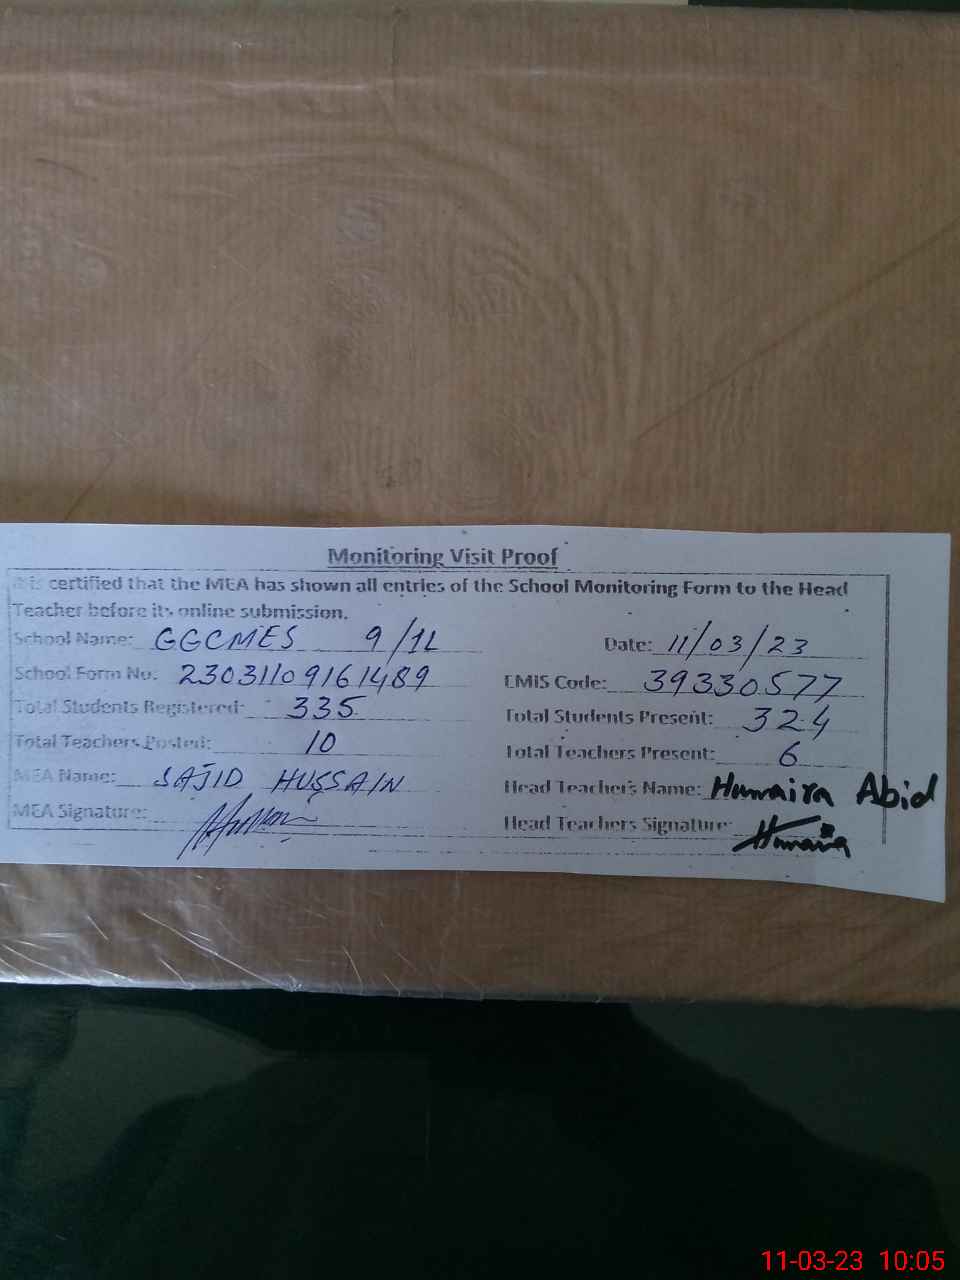 Monitoring Visit Proof
It is certified that the MEA has shown all entries of the School Monitoring Form to the Head
Teacher before its online submission.
School Name: GGCMES 9/1L Date: 11/03/23
School Form No: 23031109161489 EMIS Code: 39330577
Total Students Registered: 335 Total Students Present: 324
Total Teachers Posted: 10 Total Teachers Present: 6
MEA Name: SAJID HUSSAIN Head Teachers Name: Humaira Abid
MEA Signature: Head Teachers Signature: Humaira
11-03-23 10:05